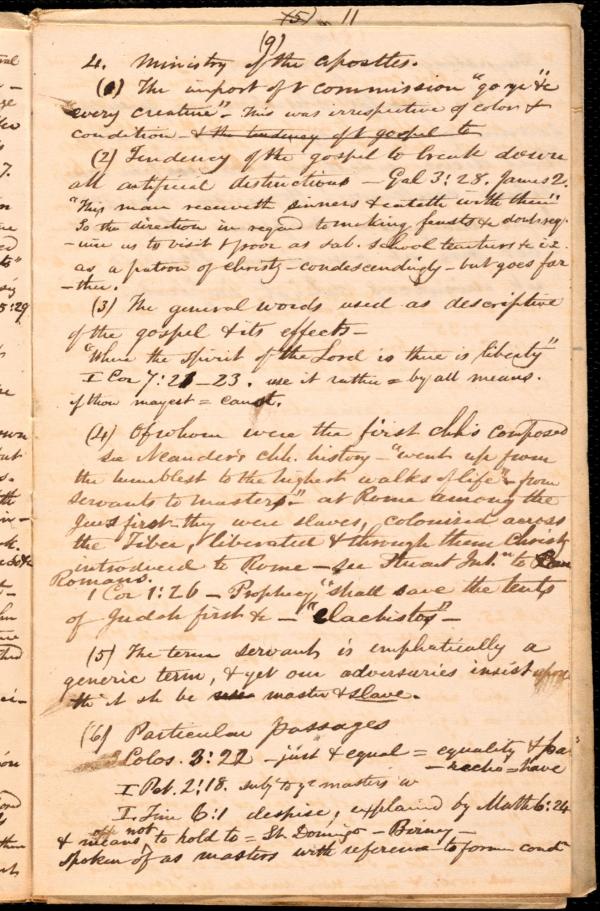 (5) 11
(9)
4. Ministry of the apostles.
(1) The import of t commission "go ye" &c
every creature" - This was irrespective of color &
condition - & the tendency of t gospel to
(2) Tendency of the gospel to break down
all artificial distinctions - Gal 3:28. James 2.
"This man receiveth sinners & eateth with them"
So the direction in regard to making feasts & dont req-
-uire us to visit t poor as sab. school teachers & i.e.
as a patron of christy - condescendingly - but goes far
-ther.
(3) The general words used as descriptive
of the gospel & its effects -
"Where the spirit of the Lord is there is liberty"
I Cor 7:21-23. use it rather = by all means.
if thou mayest = canst.
(4) Of whom were the first chhs composed
see Neander's chh. history - "went up from
the humblest to the highest walks of life" - from
servants to masters." at Rome among the
Jews first - they were slaves, colonized across
the Tiber, liberated & through them christy
introduced to Rome - see Stuart Int. to
Romans.
1 Cor 1:26 - Prophecy, "shall save the tents
of Judah first &c - "elachistos" -
(5) The term servant is emphatically a
generic term, & yet our adversaries insist upon
tht it sh be master & slave.
(6) Particular passages
Colos. 3:22 - just & equal = equality &
- echo = have
I Pet. 2:18. subj to yr masters w
I. Tim 6:1 despise, explained by Matth 6:24
& means not to hold to = St. Domingo - Birney -
Spoken of as masters with reference to former cond